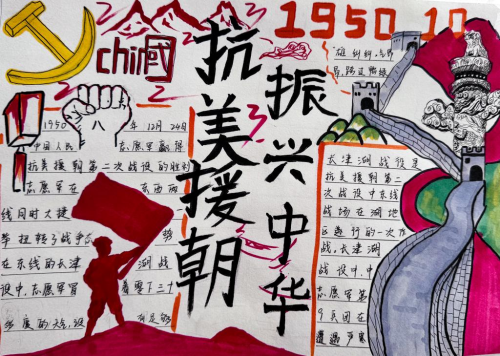 1950.10
chin國
抗美援朝
振兴中华
雄纠纠，气昂
昂，跨过鸭绿
1950 年 12月 24日
八
中国人民 志愿军赢得
抗美援朝第二次战役的胜利
志愿军在 东西两
线同时大捷
举扭转了战争 势
在东线的长津 湖战
役中，志愿军冒 着零下三十
多度的天气，没 有足够
长津湖战役是
抗美援朝第二
次战役中东线
战场在湖地
区进行的一次
战，长津湖
战役中，中
志愿军第
9兵团在
遭遇严寒